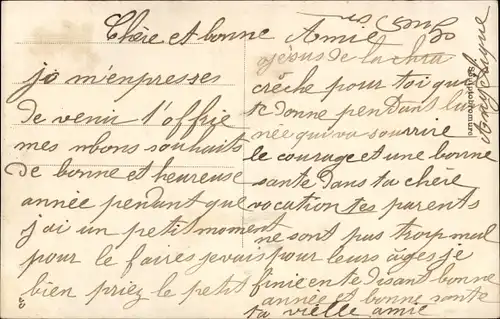 Chère et bonne Amie
jo m'enpresses
de venu t'offrie
mes mbons souhaits
de bonne et heureuse
année pendant que
j'ai un petit moment
pour le faires je vais
bien priez le petit
jésus de la
crêche pour toi qui
te donne pendant lu
née qui va sourrire
le courage et une bonne
sante dans ta chère
vocation tes parents
ne sont pas trop mal
pour leurs âges je
finie en te disant bonne
année et bonne sante
ta vielle amie